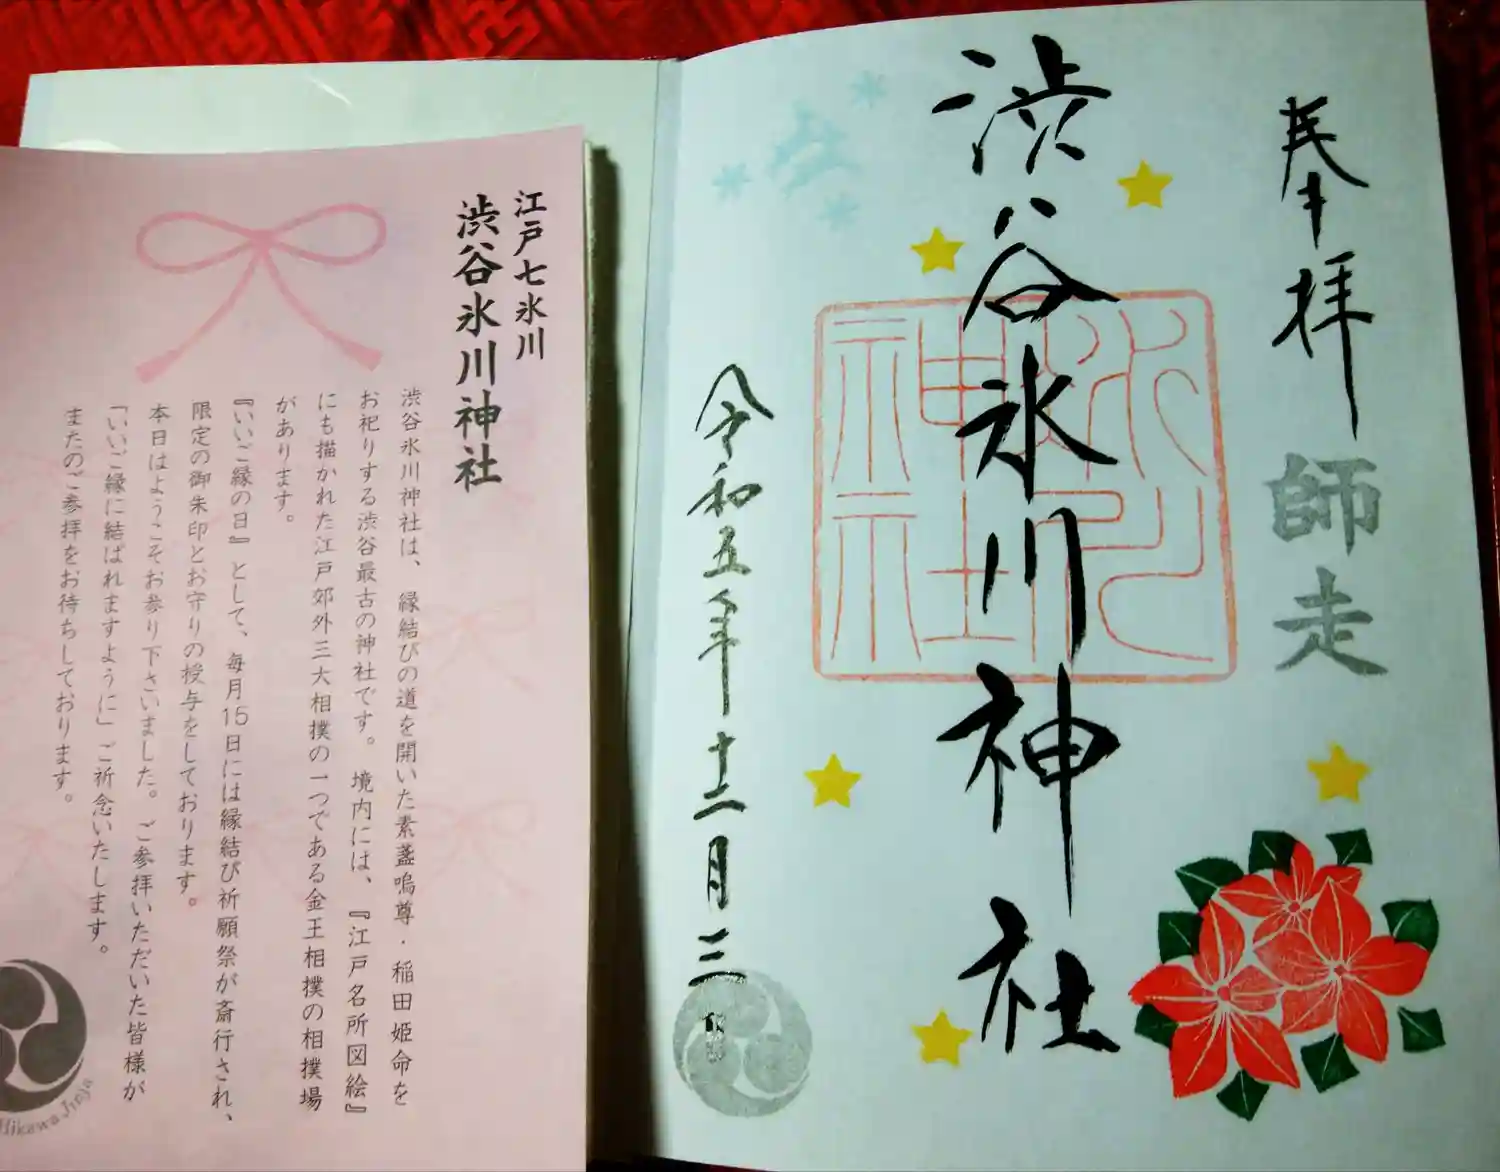 奉拝
師走
渋谷氷川神社
氷川神社
令和五年十二月三日
江戸七氷川
渋谷氷川神社
渋谷氷川神社は、縁結びの道を開いた素盞嗚尊・稲田姫命を
お祀りする渋谷最古の神社です。境内には、『江戸名所図絵』
にも描かれた江戸郊外三大相撲の一つである金王相撲の相撲場
があります。
『いいご縁の日』として、毎月15日には縁結び祈願祭が斎行され、
限定の御朱印とお守りの授与をしております。
本日はようこそお参り下さいました。ご参拝いただいた皆様が
「いいご縁に結ばれますように」ご祈念いたします。
またのご参拝をお待ちしております。
Hikawa Jinja